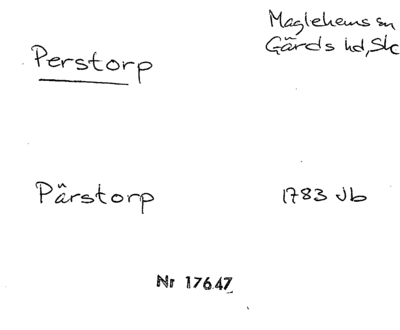 Perstorp
Maglehems sn
Gärds hd, Sk
Pärstorp
1783 Jb
Nr 17647